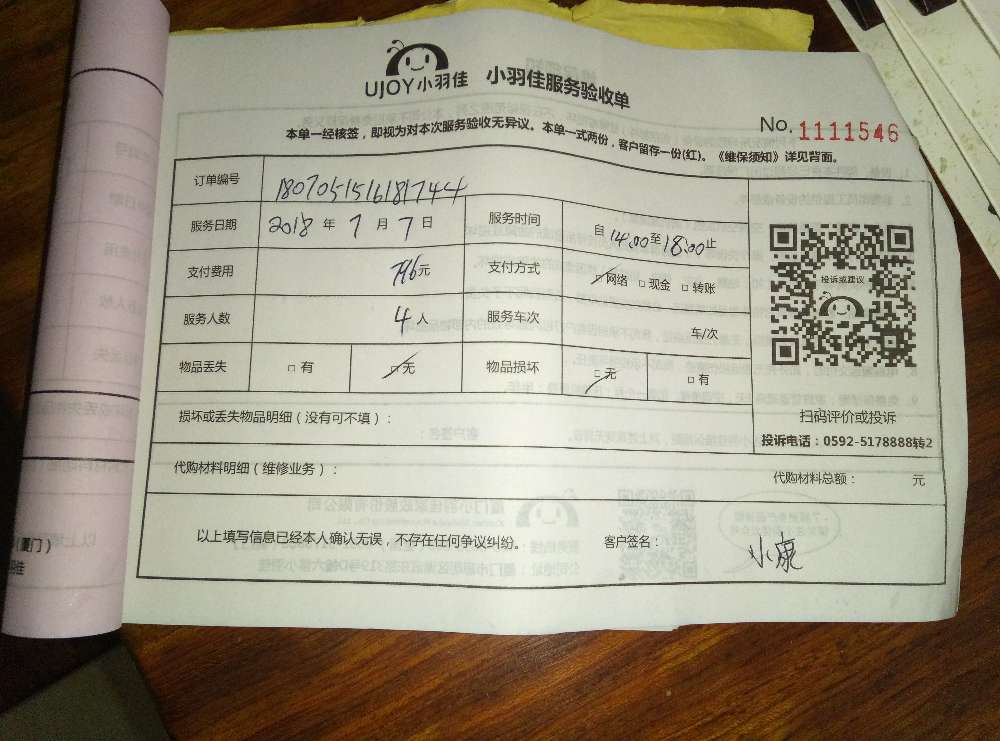 UJOY小羽佳 小羽佳服务验收单
No. 1111546
本单一经核签，即视为对本次服务验收无异议。本单一式两份，客户留存一份(红)。《维保须知》详见背面。
订单编号 1807051516181744
服务日期 2018 年 7 月 7 日 服务时间 自 14:00 至 18:00 止
支付费用 元 支付方式 网络 □ 现金 □ 转账
投诉或建议
服务人数 4 人 服务车次 车/次
物品丢失 □ 有 □ 无 物品损坏 □ 无 □ 有
扫码评价或投诉
损坏或丢失物品明细（没有可不填）：
投诉电话：0592-5178888转2
代购材料明细（维修业务）： 代购材料总额： 元
以上填写信息已经本人确认无误，不存在任何争议纠纷。 客户签名： 小康